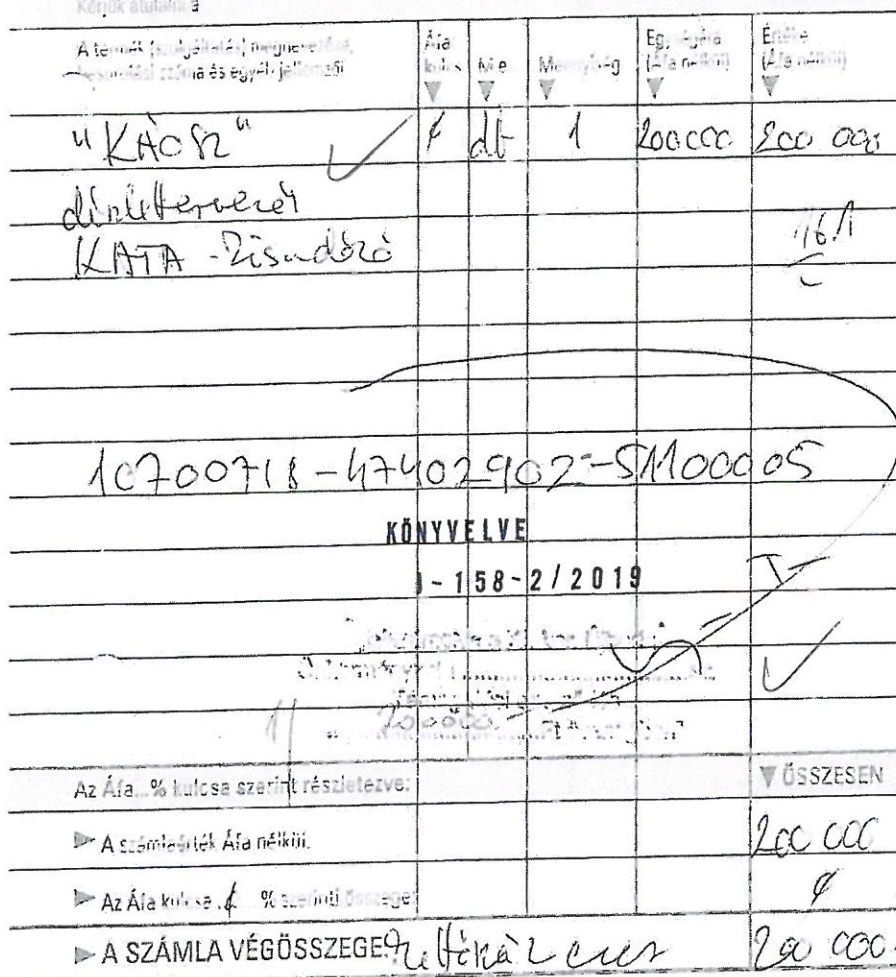 Kérjük átutalni a
A termék (szolgáltatás) megnevezése, besorolási száma és egyéb jellemzői
Áfa kulcs
M.e.
Mennyiség
Egységára (Áfa nélkül)
Értéke (Áfa nélkül)
"KÀOSZ" ¢ db 1 200000 200 000
díszlettervezés
KATA-Kisadózó
16.1
10700718-47402902-51100005
KÖNYVELVE
-158-2/2019
200000
Az Áfa...% kulcsa szerint részletezve:
ÖSSZESEN
A számlaérték Áfa nélkül.
200 000
Az Áfa kulcsa ¢ % szerinti összege
¢
A SZÁMLA VÉGÖSSZEGE: Kettőszázezer 200 000.